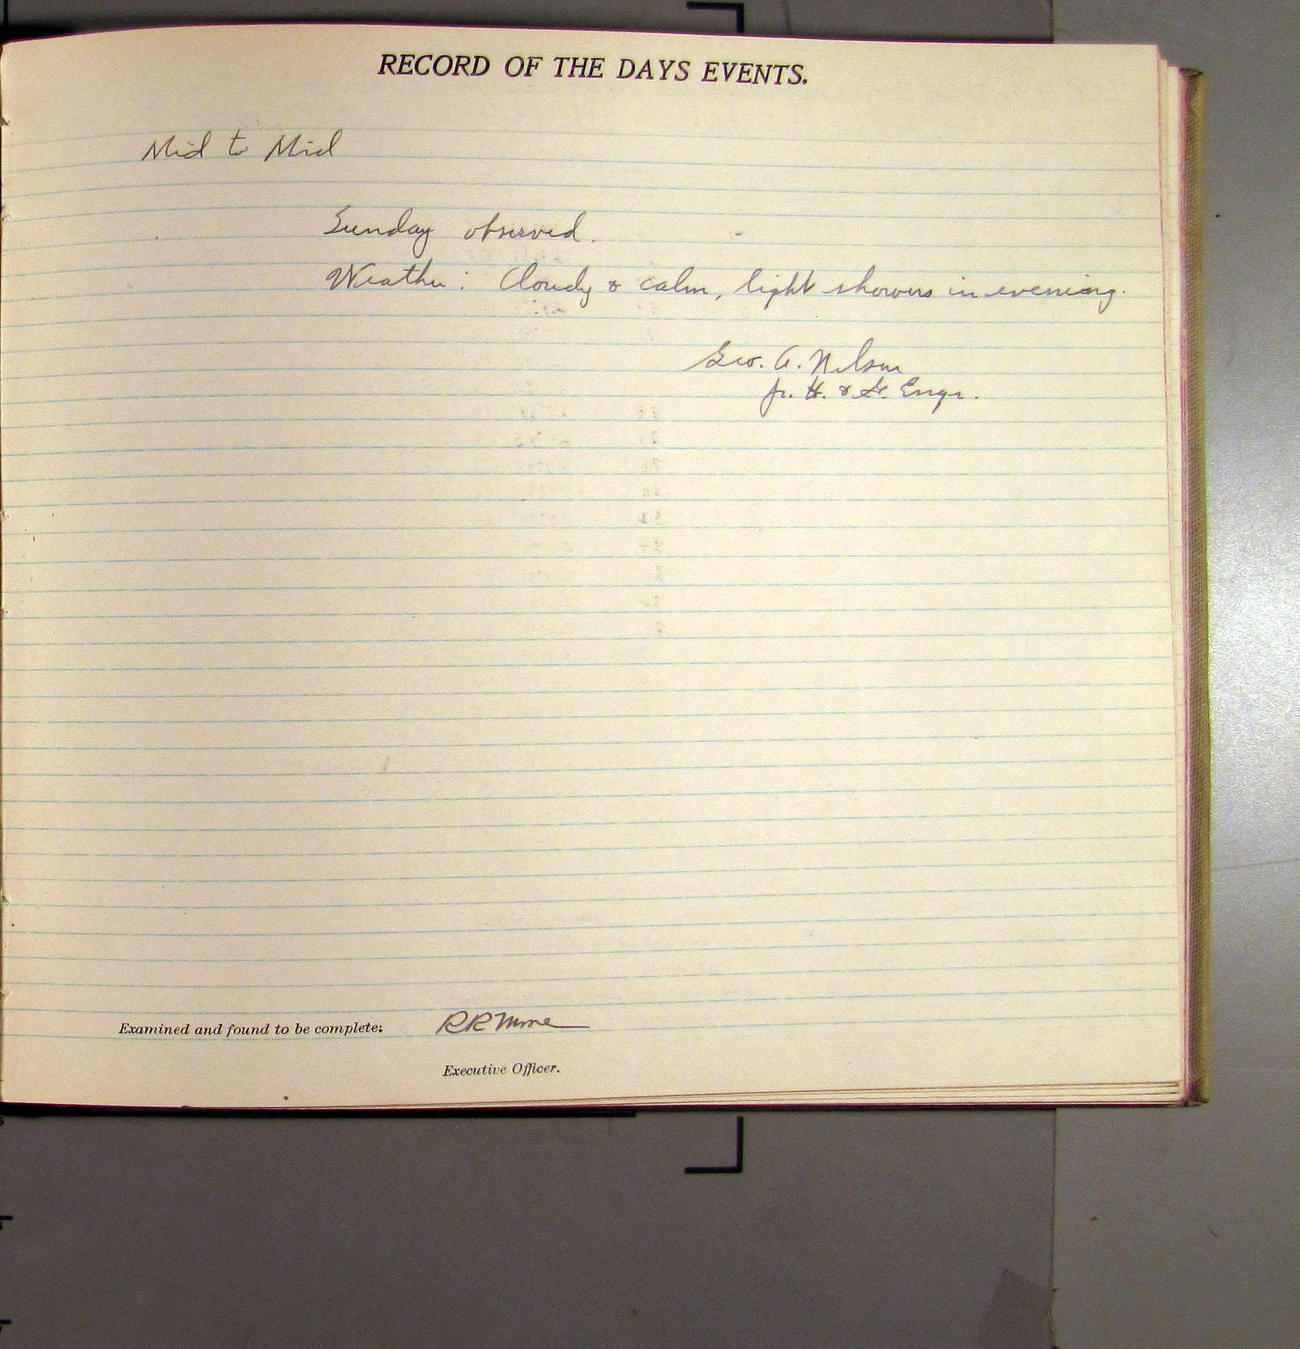 RECORD OF THE DAYS EVENTS.
Mid to Mid
Sunday observed.
Weather: Cloudy & calm, light showers in evening.
Geo. A. Nelson
Jr. H. & G. Engr.
Examined and found to be complete:
Executive Officer.